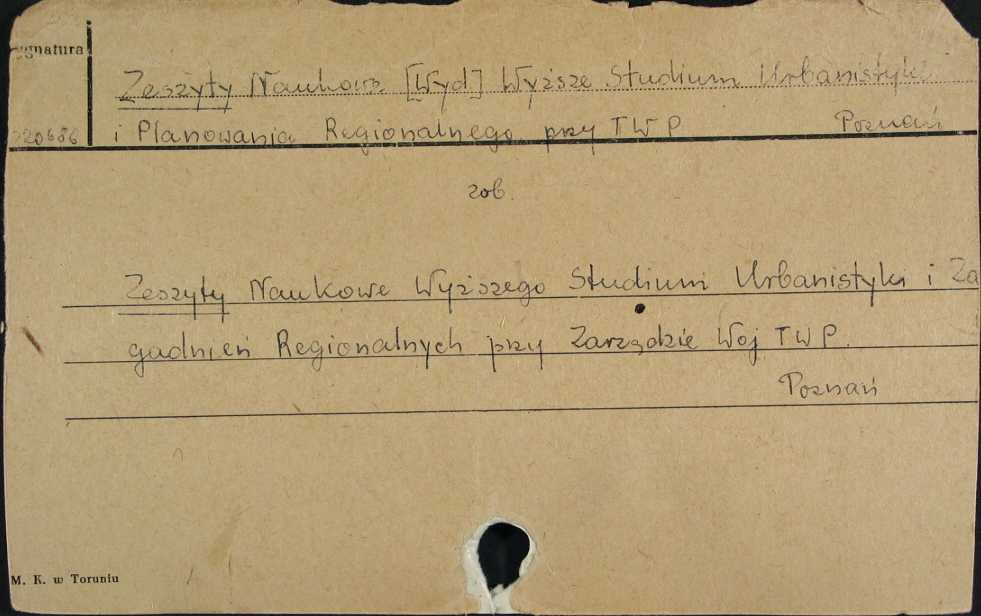 ygnatura
Zeszyty Naukowe [Wyd] Wyższe Studium Urbanistyki
320686 i Planowania Regionalnego przy TWP Poznań
zob.
Zeszyty Naukowe Wyższego Studium Urbanistyki i Za
gadnień Regionalnych przy Zarządzie Woj TWP.
Poznań
M. K. w Toruniu